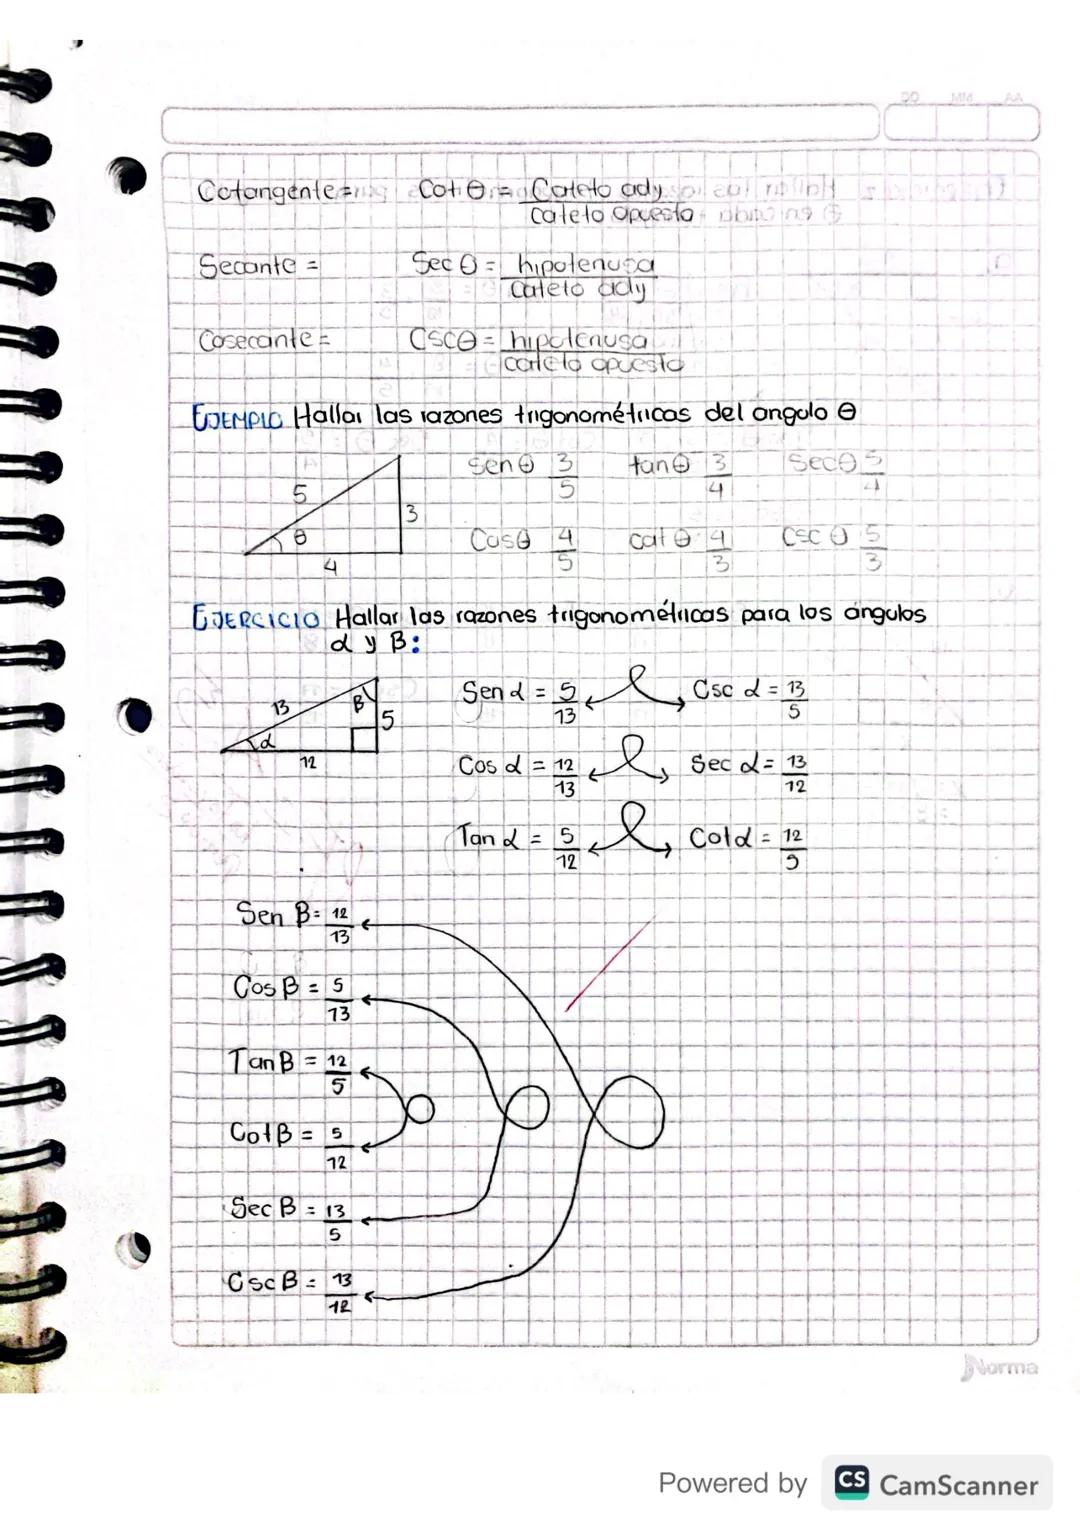 DD MM AA
Cotangente = Cot Θ = Cateto ady
cateto opuesto
Secante = Sec Θ = hipotenusa
cateto ady
Cosecante = Csc Θ = hipotenusa
cateto opuesto
EJEMPLO Hallar las razones trigonométricas del ángulo Θ
sen Θ 3/5 tan Θ 3/4 Sec Θ 5/4
5
3
Θ
4
Cos Θ 4/5 cat Θ 4/3 Csc Θ 5/3
EJERCICIO Hallar las razones trigonométricas para los ángulos
α y β:
13 β 5
α
12
Sen α = 5/13 Csc α = 13/5
Cos α = 12/13 Sec α = 13/12
Tan α = 5/12 Cot α = 12/5
Sen β = 12/13
Cos β = 5/13
Tan β = 12/5
Cot β = 5/12
Sec β = 13/5
Csc β = 13/12
Norma
Powered by CS CamScanner